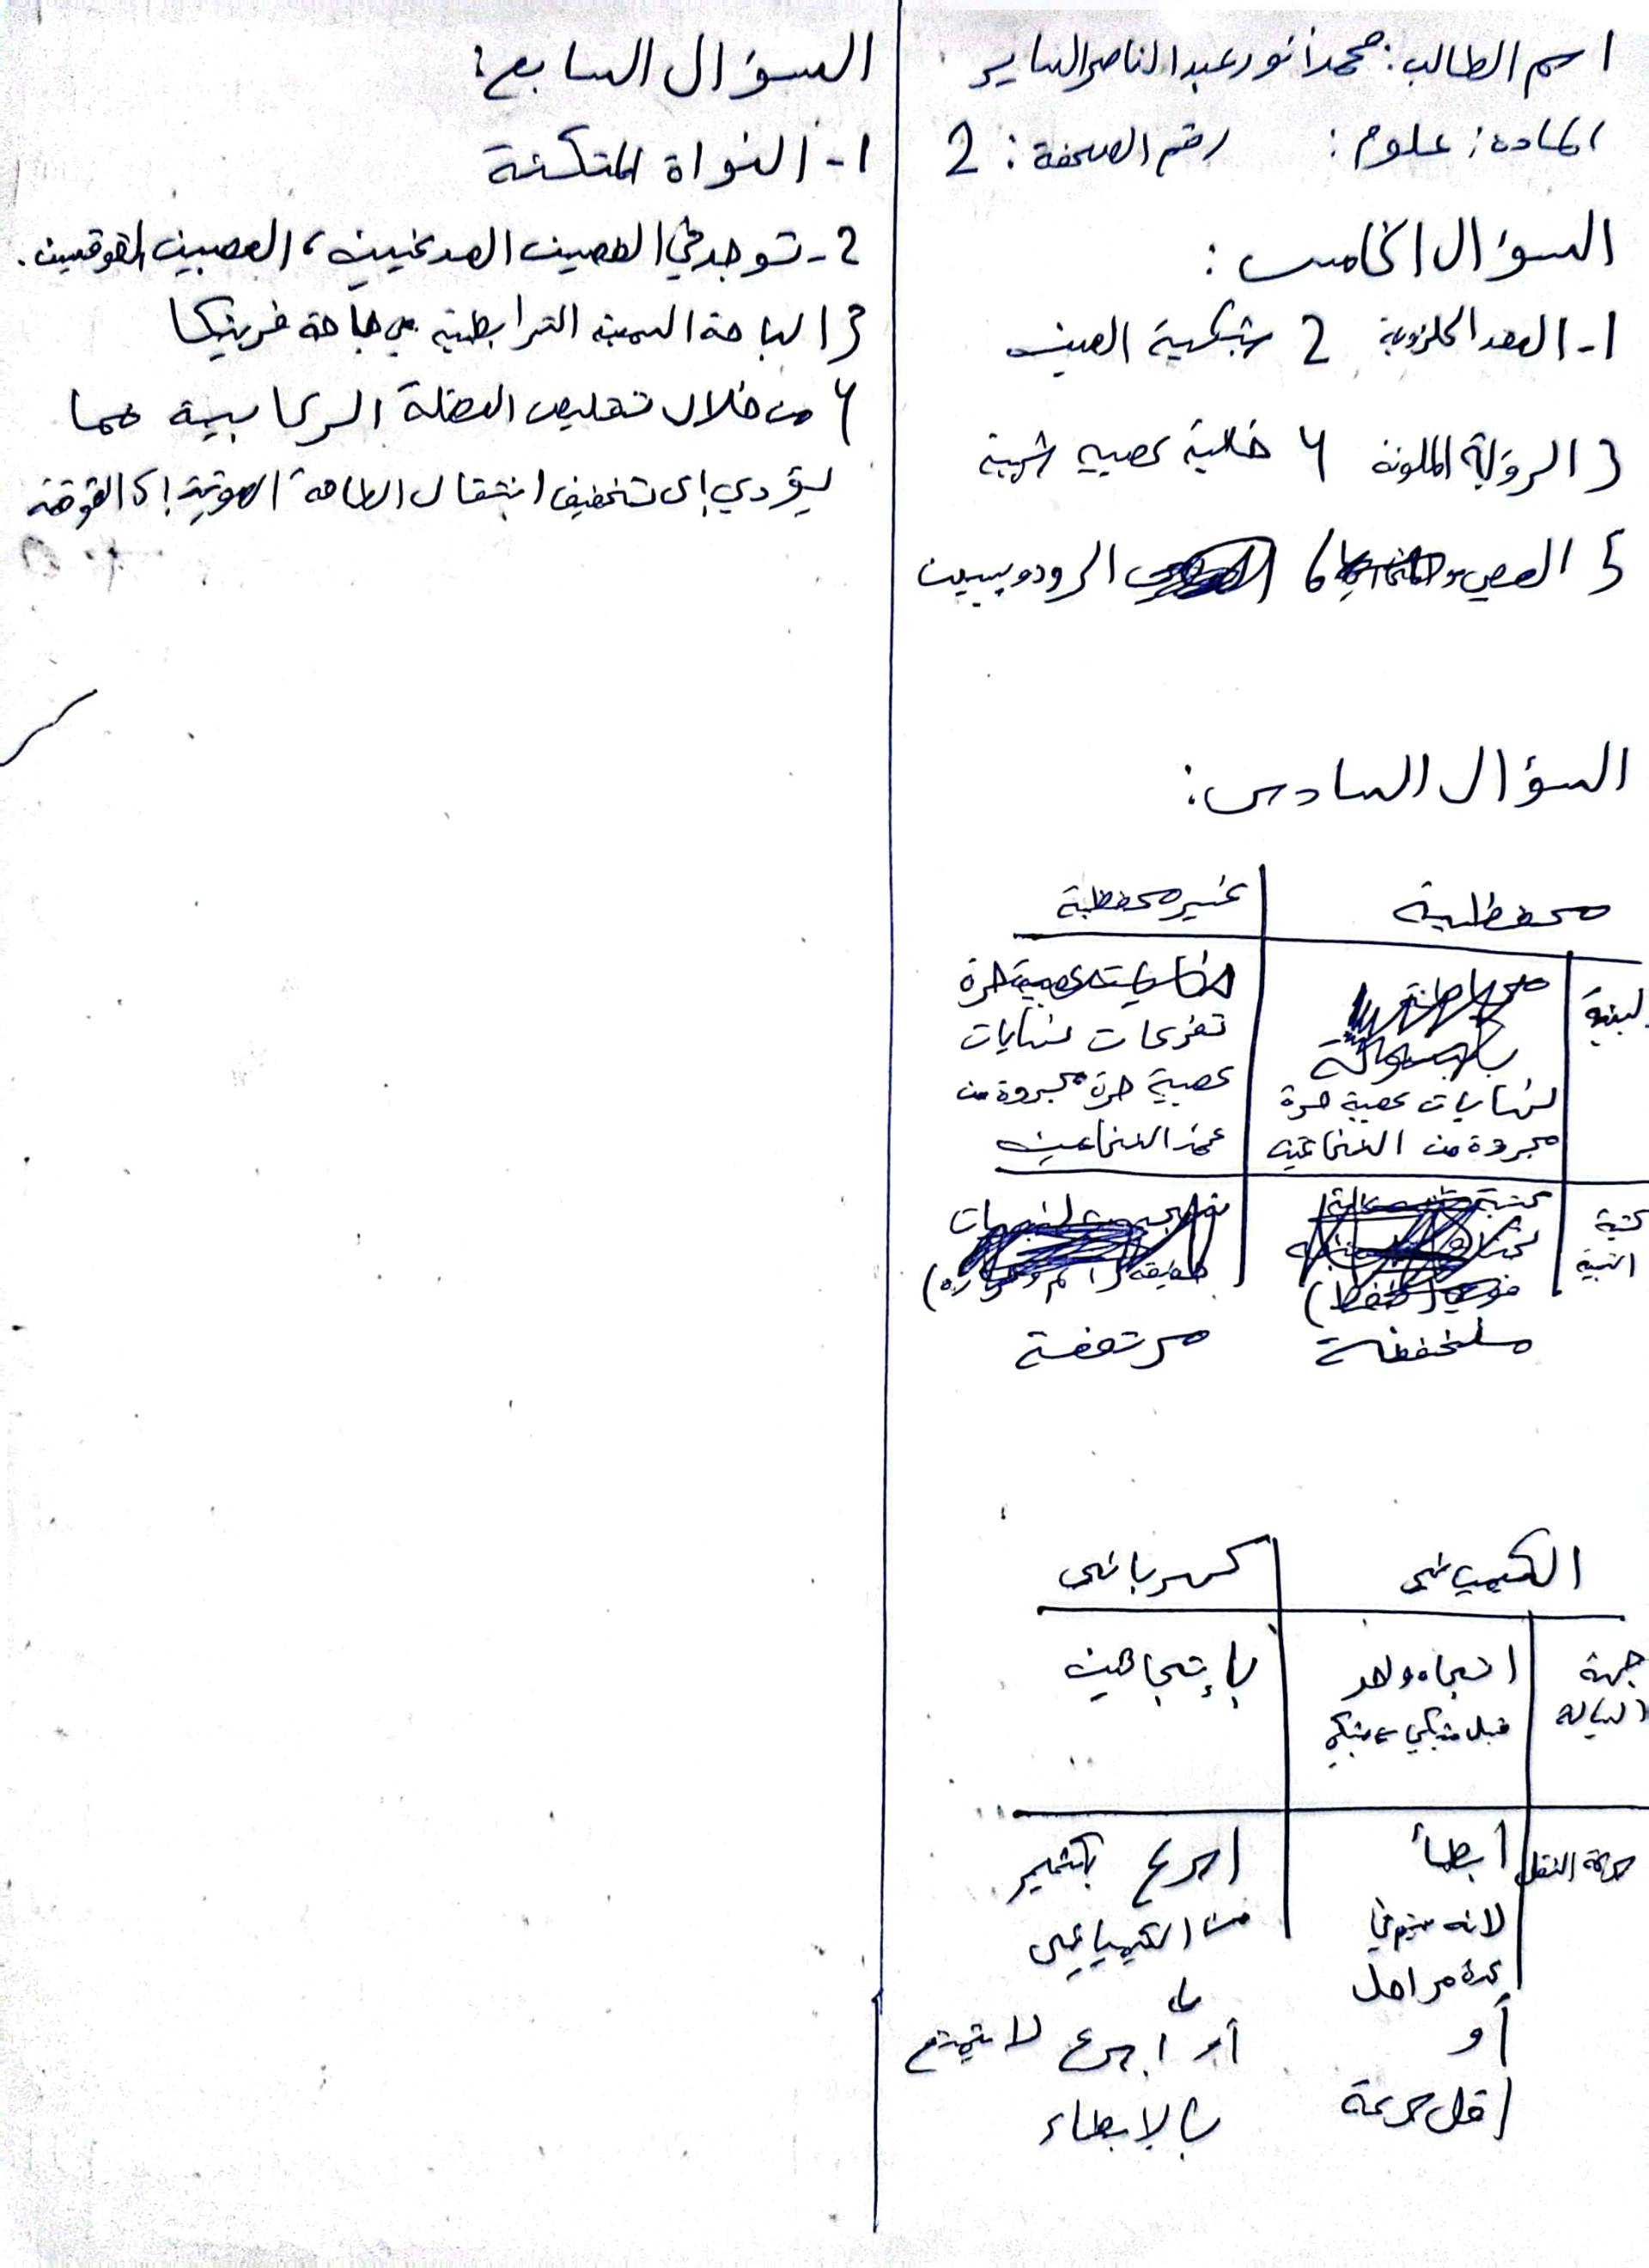 اسم الطالب: محمد أنور عبد الناصر الساير
المادة: علوم: رقم الصحفة: 2
السؤال الخامس:
1- العقد الحلزونية 2 شبكية العين
3 الرؤية الملونة 4 خلية عصبية شمية
5 العصي و 6 الرودوبسين
السؤال السادس:
محفظية غير محفظية
البنية
نهايات عصبية حرة
مجردة من النخاعين
تفرعات نهايات
عصبية حرة مجردة من
غمد النخاعين
عتبة التنبيه
منخفضة مرتفعة
الكيميائي كهربائي
جهة السيالة
اتجاه واحد
قبل مشبكي بمشبكي
بإتجاهين
سرعة النقل
أبطأ
لانه يتم في
عدة مراحل
أو
أقل سرعة
اسرع بكثير
من الكيميائي
أو اسرع لا يتمتع
بالإبطاء
السؤال السابع:
1- النواة المتكئة
2- توجد في الفصين الصدغيين، العصبين القوقعيين.
3 الباحة السمعية الترابطية في باحة فرينكا
4 من خلال تقليص العضلة الركابية مما
يؤدي إلى تخفيف انتقال الطاقة الصوتية إلى القوقعة